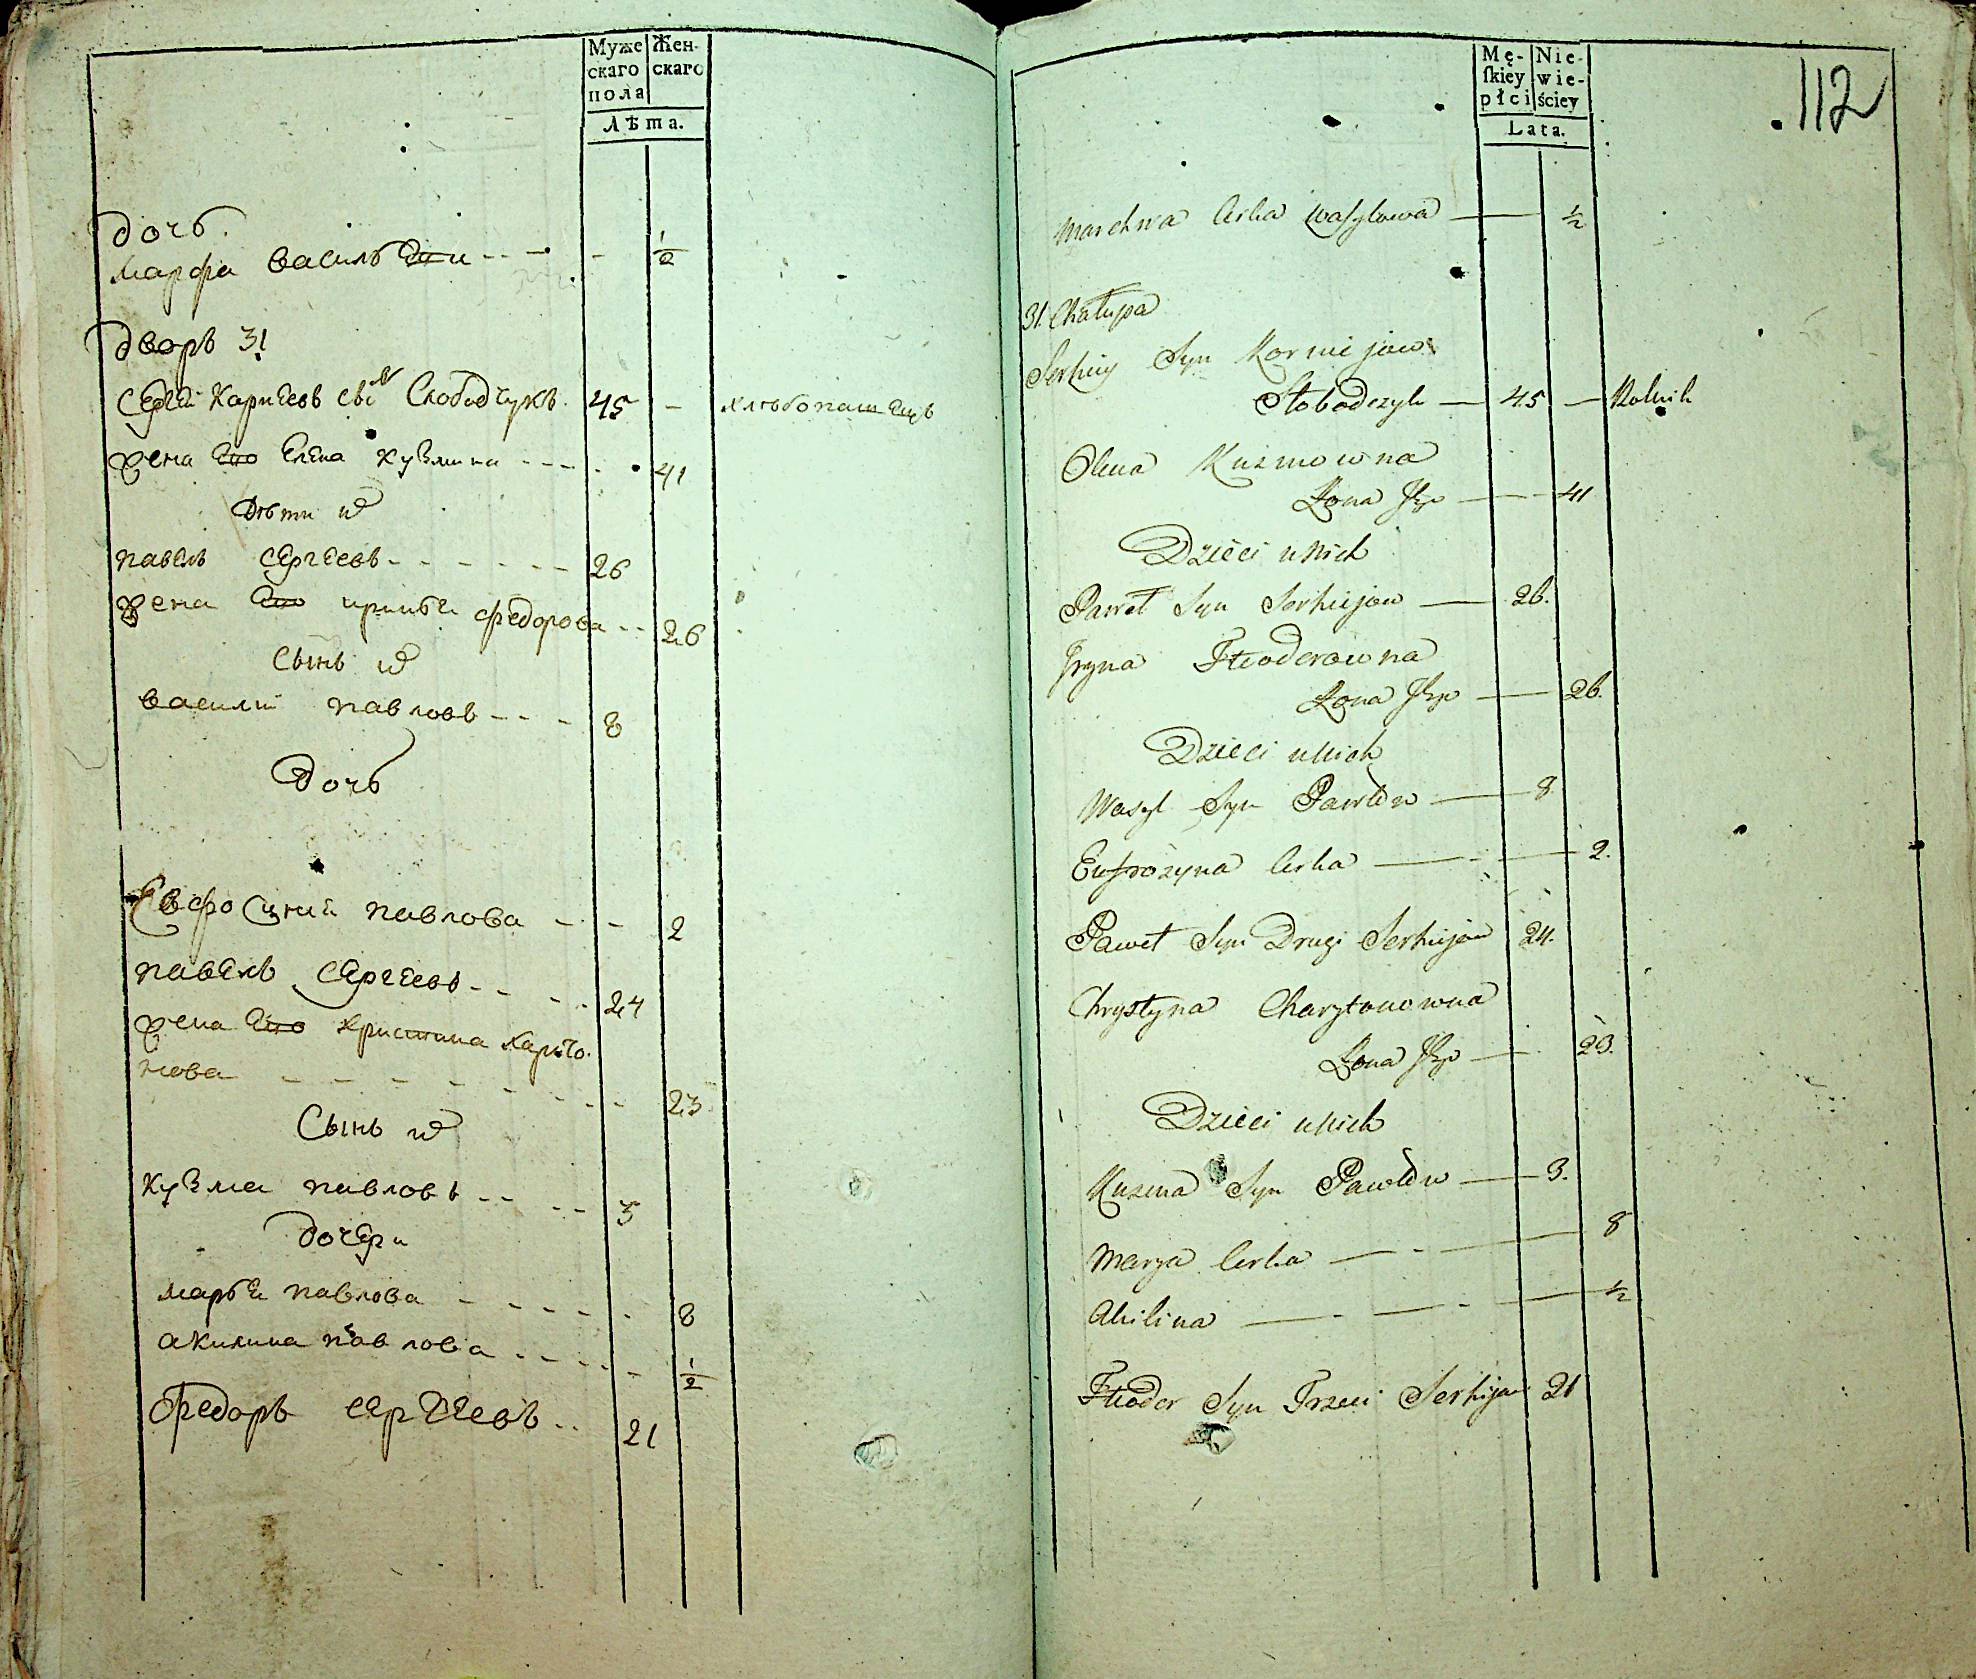 Муже Жен-
скаго скаго
пола
Лѣта.
дочь
марфа васильева - - - - 1/2
дворъ 31
Сергей Карнеевъ снъ Слободчукъ 45 - хлѣбопашецъ
жена его Елена кузмина - - - 41
Дѣти их
павелъ сергеевъ - - - - - - 26
жена его ирина федорова - - 26
Сынъ их
василий павловъ - - - 8
Дочь
Евфросиния павлова - - - 2
павелъ сергеевъ - - - - 24
жена его христина харито
нова - - - - - - - - 23
Сынъ их
кузма павловъ - - - - 3
дочери
марья павлова - - - - - 8
акилина павлова - - - - - 1/2
Федоръ сергеевъ - - 21
Mę- Nie-
ſkiey wie-
płci ściey
Lata.
112
Marchwa Corka Wasylowa — 1/2
31. Chałupa
Serhiy Syn Korniejow
Słobodczyk — 45 — Rolnik
Olena Kuzmowna
Żona Jego — 41
Dzieci u Nich
Paweł Syn Serhiejow — 26.
Jryna Fteodorowna
Żona Jego — 26.
Dzieci u Nich
Wasyl Syn Pawłow — 8
Eufrozyna Corka — 2.
Paweł Syn Drugi Serhiejow 24.
Chrystyna Charytonowna
Żona Jego — 23.
Dzieci u Nich
Kuzma Syn Pawłow — 3.
Marya Corka — 8
Akilina — 1/2
Fteodor Syn Trzeci Serhijow 21